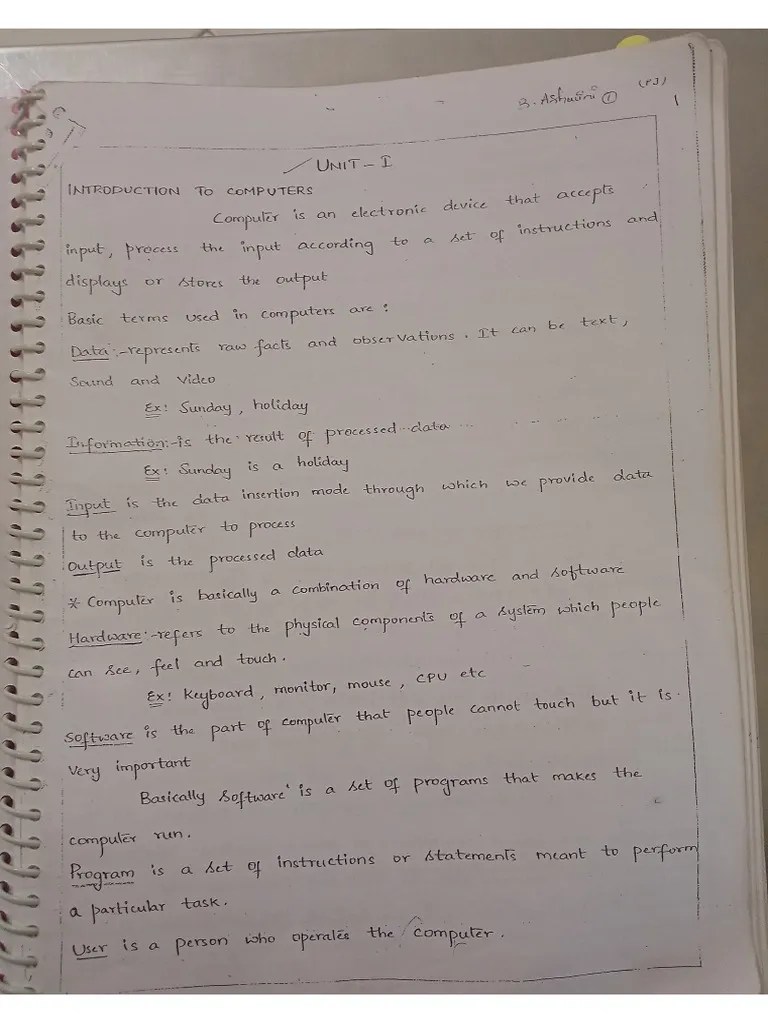 (PJ)
B. Ashwini ①
1
UNIT - I
INTRODUCTION TO COMPUTERS
Computer is an electronic device that accepts
input, process the input according to a set of instructions and
displays or stores the output
Basic terms used in computers are :
Data :- represents raw facts and observations. It can be text,
Sound and Video
Ex: Sunday, holiday
Information:- is the result of processed data
Ex: Sunday is a holiday
Input is the data insertion mode through which we provide data
to the computer to process
Output is the processed data
* Computer is basically a combination of hardware and software
Hardware:- refers to the physical components of a system which people
can see, feel and touch.
Ex: Keyboard, monitor, mouse, CPU etc
Software is the part of computer that people cannot touch but it is
Very important
Basically software is a set of programs that makes the
computer run.
Program is a set of instructions or statements meant to perform
a particular task.
User is a person who operates the computer.